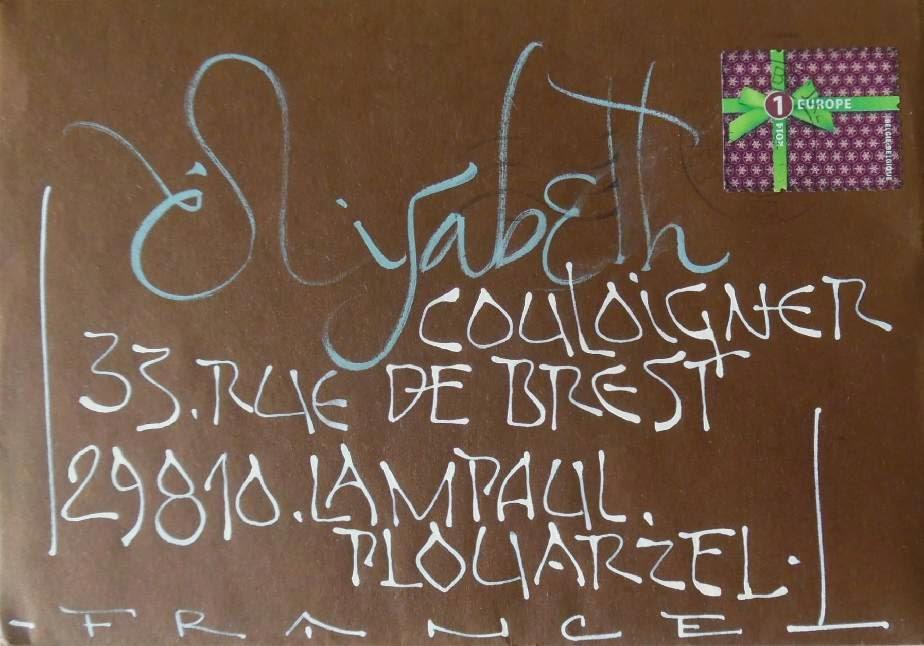 Elisabeth
COULOIGNER
33.RUE DE BREST
29810.LAMPAUL.
PLOUARZEL.
-FRANCE
1 EUROPE
2014
BELGIE-BELGIQUE